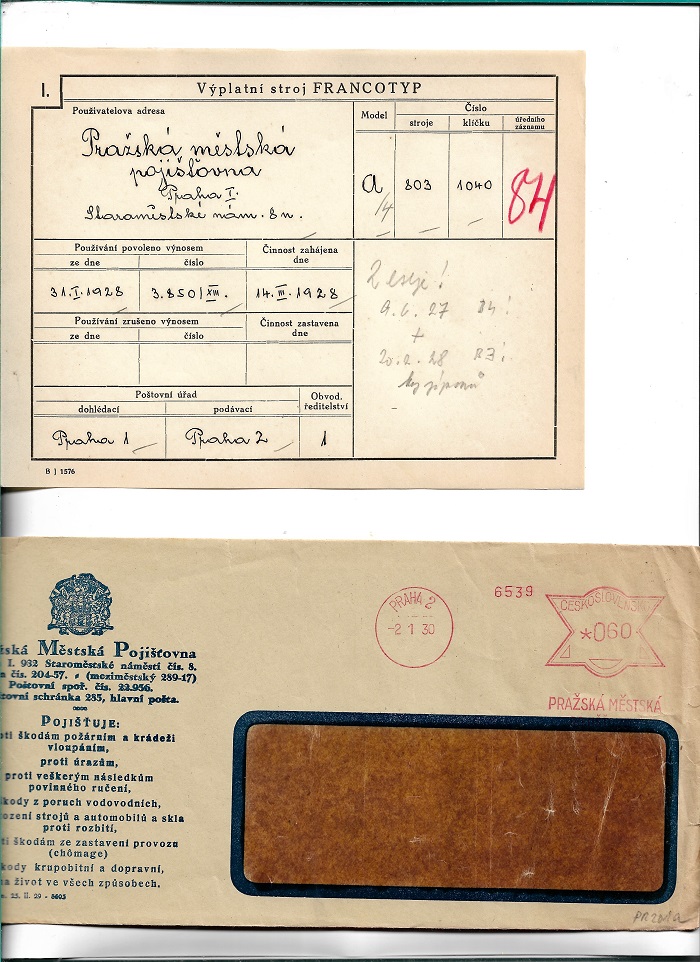 I.
Výplatní stroj FRANCOTYP
Použivatelova adresa
Pražská městská
pojišťovna
Praha I.
Staroměstské nám. 8 n.
Model
Číslo
stroje
klíčku
úředního
záznamu
A
/4
803
1040
84
Používání povoleno výnosem
ze dne
číslo
Činnost zahájena
dne
31.I.1928
3.850/XIII.
14.III.1928
Používání zrušeno výnosem
ze dne
číslo
Činnost zastavena
dne
Poštovní úřad
dohlédací
podávací
Obvod.
ředitelství
Praha 1
Praha 2
1
2
9.6.27
84!
+
28
B J 1576
žská Městská Pojišťovna
I. 932 Staroměstské náměstí čís. 8.
čís. 204-57. (meziměstský 289-17)
Poštovní spoř. čís. 22.956.
tovní schránka 285, hlavní pošta.
POJIŠŤUJE:
oti škodám požárním a krádeži
vloupáním,
proti úrazům,
proti veškerým následkům
povinného ručení,
kody z poruch vodovodních,
ození strojů a automobilů a skla
proti rozbití,
ti škodám ze zastavení provozu
(chômage)
kody krupobitní a dopravní,
na život ve všech způsobech.
23. II. 29 - 8605
PRAHA 2
-2 1 30
6539
ČESKOSLOVENSKO
*060
PRAŽSKÁ MĚSTSKÁ